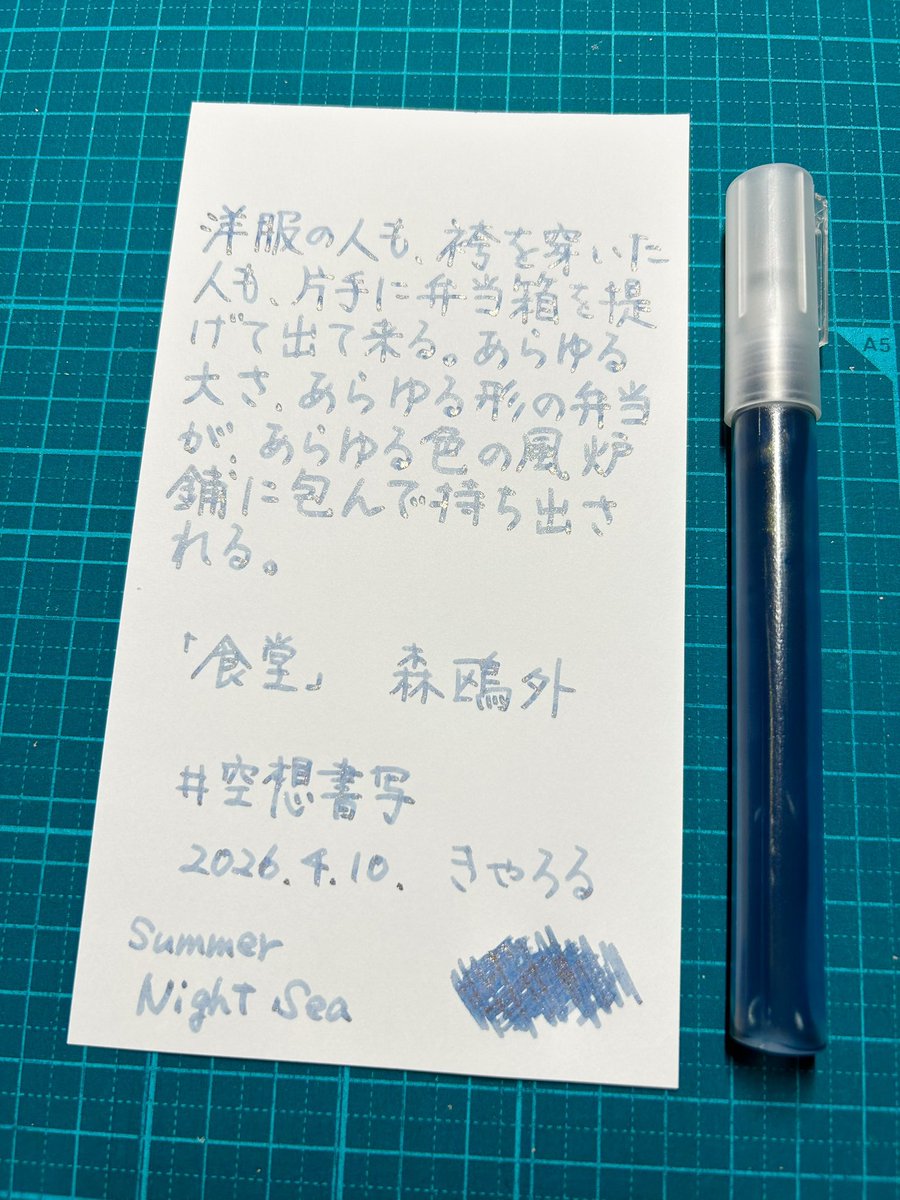 洋服の人も、袴を穿いた
人も、片手に弁当箱を提
げて出て来る。あらゆる
大さ、あらゆる形の弁当
が、あらゆる色の風炉
鋪に包んで持ち出さ
れる。
「食堂」 森鴎外
#空想書写
2026.4.10. きゃろる
Summer
Night Sea
A5